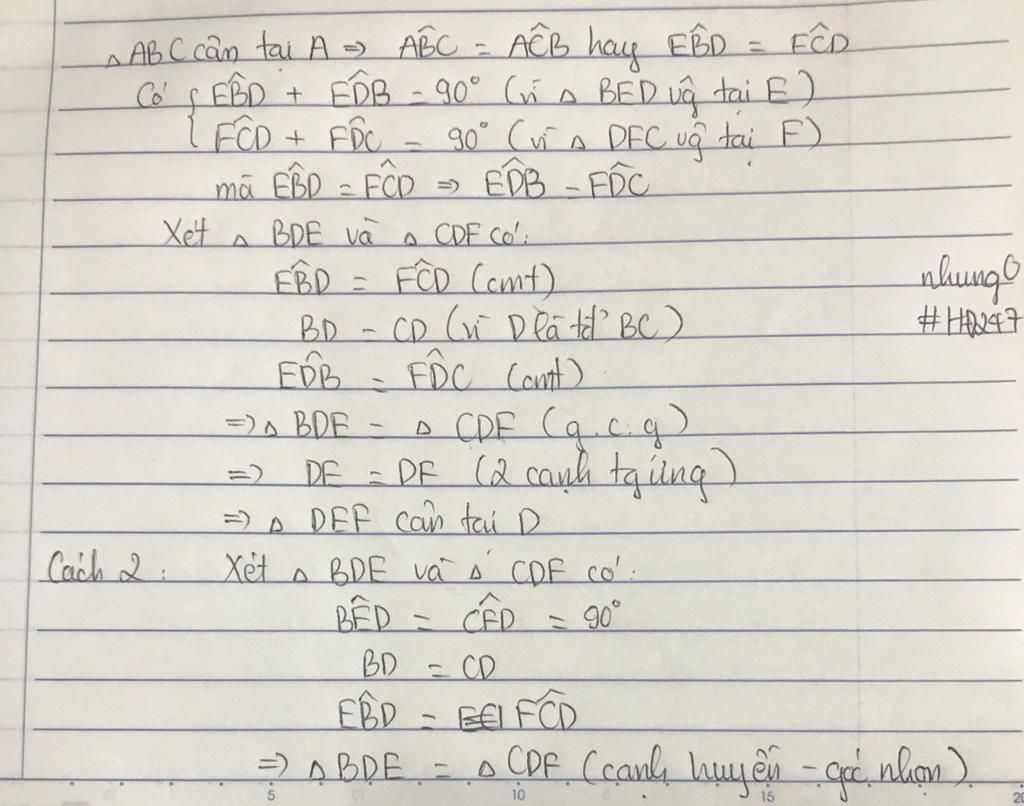 △ABC cân tại A ⇒ AB̂C = AĈB hay EB̂D = FĈD
Có { EB̂D + ED̂B = 90° (vì △ BED vĝ tại E)
{ FĈD + FD̂C = 90° (vì △ DFC vĝ tại F)
mà EB̂D = FĈD ⇒ ED̂B = FD̂C
Xét △ BDE và △ CDF có:
EB̂D = FĈD (cmt)
nhung0
BD = CD (vì D là tđ' BC)
ED̂B = FD̂C (cmt)
⇒ △ BDE = △ CDF (g.c.g)
⇒ DE = DF (2 cạnh tg ứng)
⇒ △ DEF cân tại D
Cách 2: Xét △ BDE và △ CDF có:
BÊD = CF̂D = 90°
BD = CD
EB̂D = FĈD
⇒ △ BDE = △ CDF (cạnh huyền - góc nhọn)
5 10 15 20